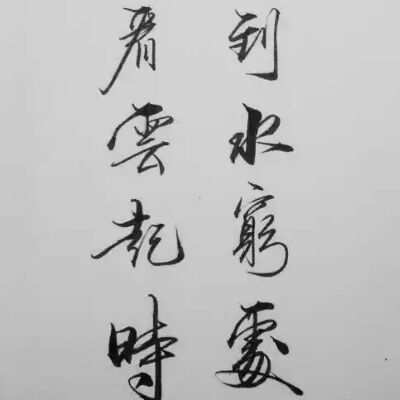 到水窮處
看雲起時